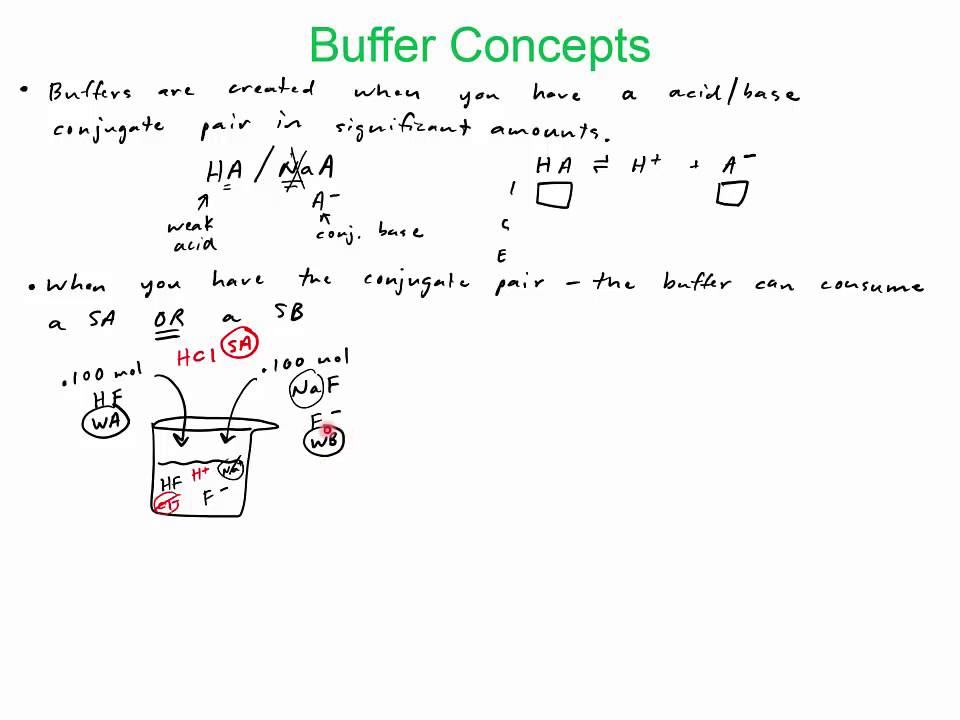 Buffer Concepts
• Buffers are created when you have a acid/base
conjugate pair in significant amounts.
HA / NaA
HA ⇌ H+ + A-
A-
I
weak
acid
conj. base
C
E
• When you have the conjugate pair - the buffer can consume
a SA OR a SB
HCl SA
.100 mol
.100 mol
HF
NaF
WA
F-
WB
HF H+ Na+
Cl- F-